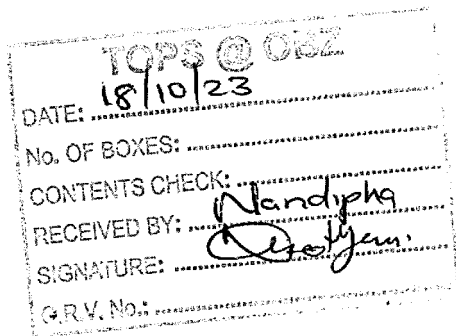 TOPS @ OBZ
DATE: 18/10/23
No. OF BOXES:
CONTENTS CHECK:
RECEIVED BY: Nandipha
SIGNATURE:
G.R.V. No.: